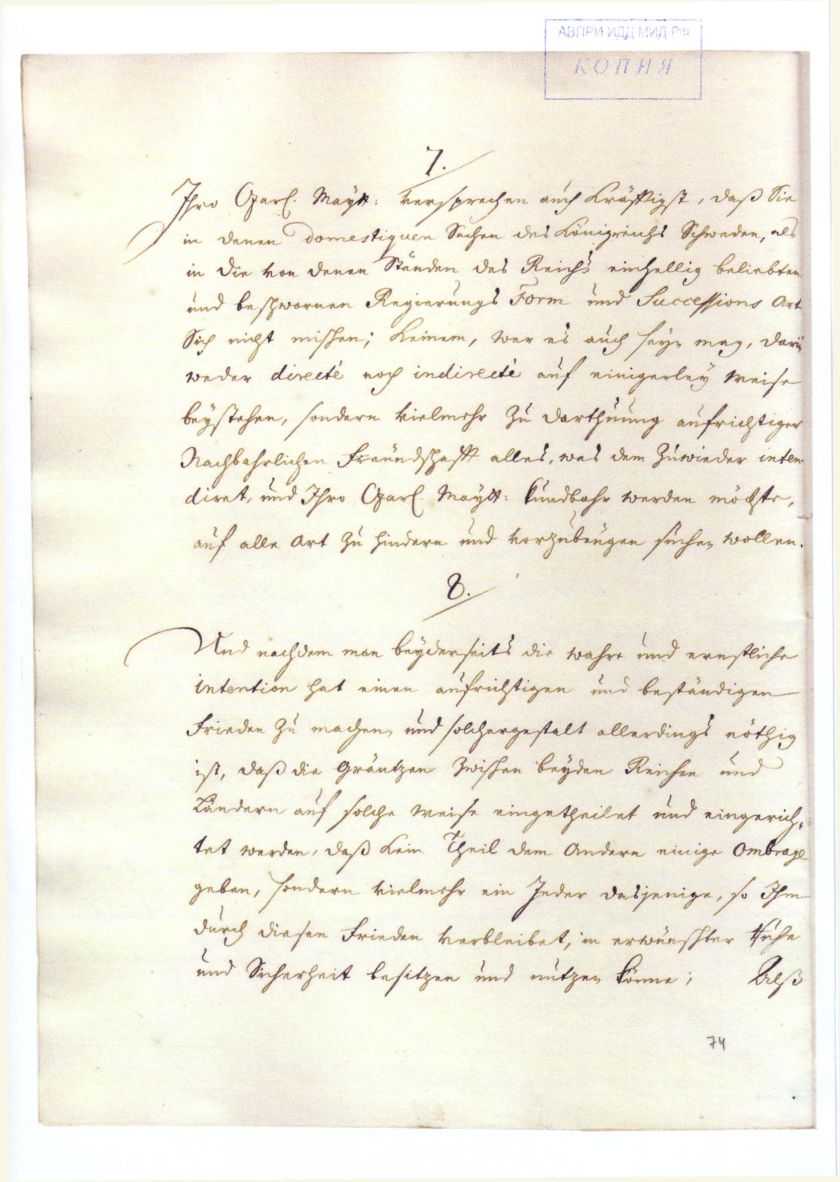 АВПРИ ИДД МИД РФ
КОПИЯ
7.
Ihro Czarl. Maytt: versprechen auch kräfftigst, daß Sie
in denen domestiquen Sachen des Königreichs Schweden, als
in die von denen Ständen des Reichs einhellig beliebten
und beschwornen Regierungs Form und Successions Art
Sich nicht mischen; keinem, wer es auch seyn mag, darin
weder directè noch indirectè auf einigerley Weise
beystehen, sondern vielmehr zu darthuung aufrichtiger
Nachbahrlichen Freündschafft alles, was dem zuwieder inten-
diret, und Ihro Czarl. Maytt: kundbahr werden möchte,
auf alle Art zu hindern und vorzubeügen suchen wollen.
8.
Und nachdem man beyderseits die wahre und ernstliche
intention hat einen aufrichtigen und beständigen
Frieden zu machen, und solchergestalt allerdings nöthig
ist, daß die Gräntzen zwischen beyden Reichen und
Ländern auf solche Weise eingetheilet und eingerich-
tet werden, daß kein Theil dem Andern einige Ombrage
geben, sondern vielmehr ein Jeder dasjenige, so Ihm
durch diesen Frieden verbleibet, in erwünschter Ruhe
und Sicherheit besitzen und nutzen könne; Alß
74